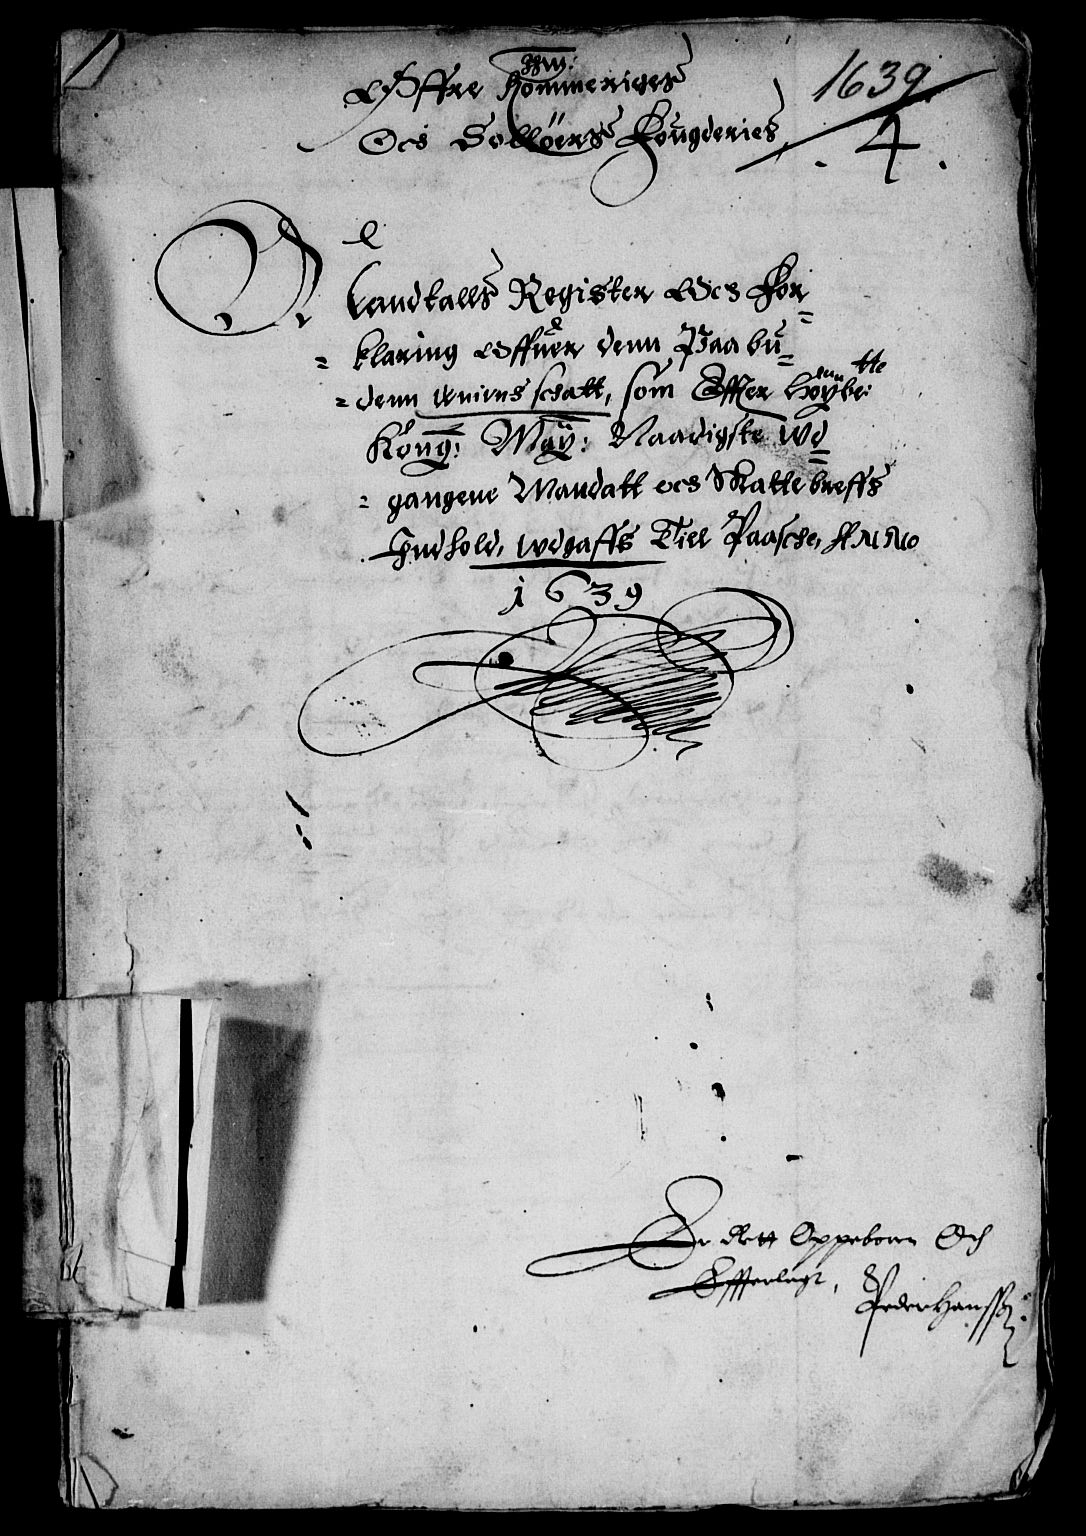 Øffre Rommeriges
Ocs Sollöers Fougderies
1639
4
Mandtalls Register Ocs For
klaring Offuer denn Paa bu
denn Unions schatt, som Effter Höybe:
Kong: May: Naadigste Wd
gangene Mandatt ocs Skatte breffs
Indhold, wdgaffs Tiel Paasche, Anno
1639
Er Rett Oppeboren Och
Effterlagt,
Peder Hanssøn